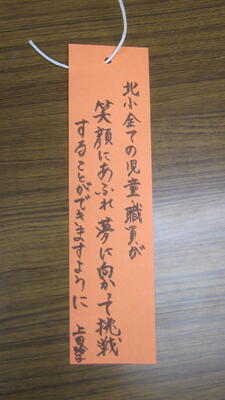 北小全ての児童、職員が
笑顔にあふれ夢に向かって挑戦
することができますように